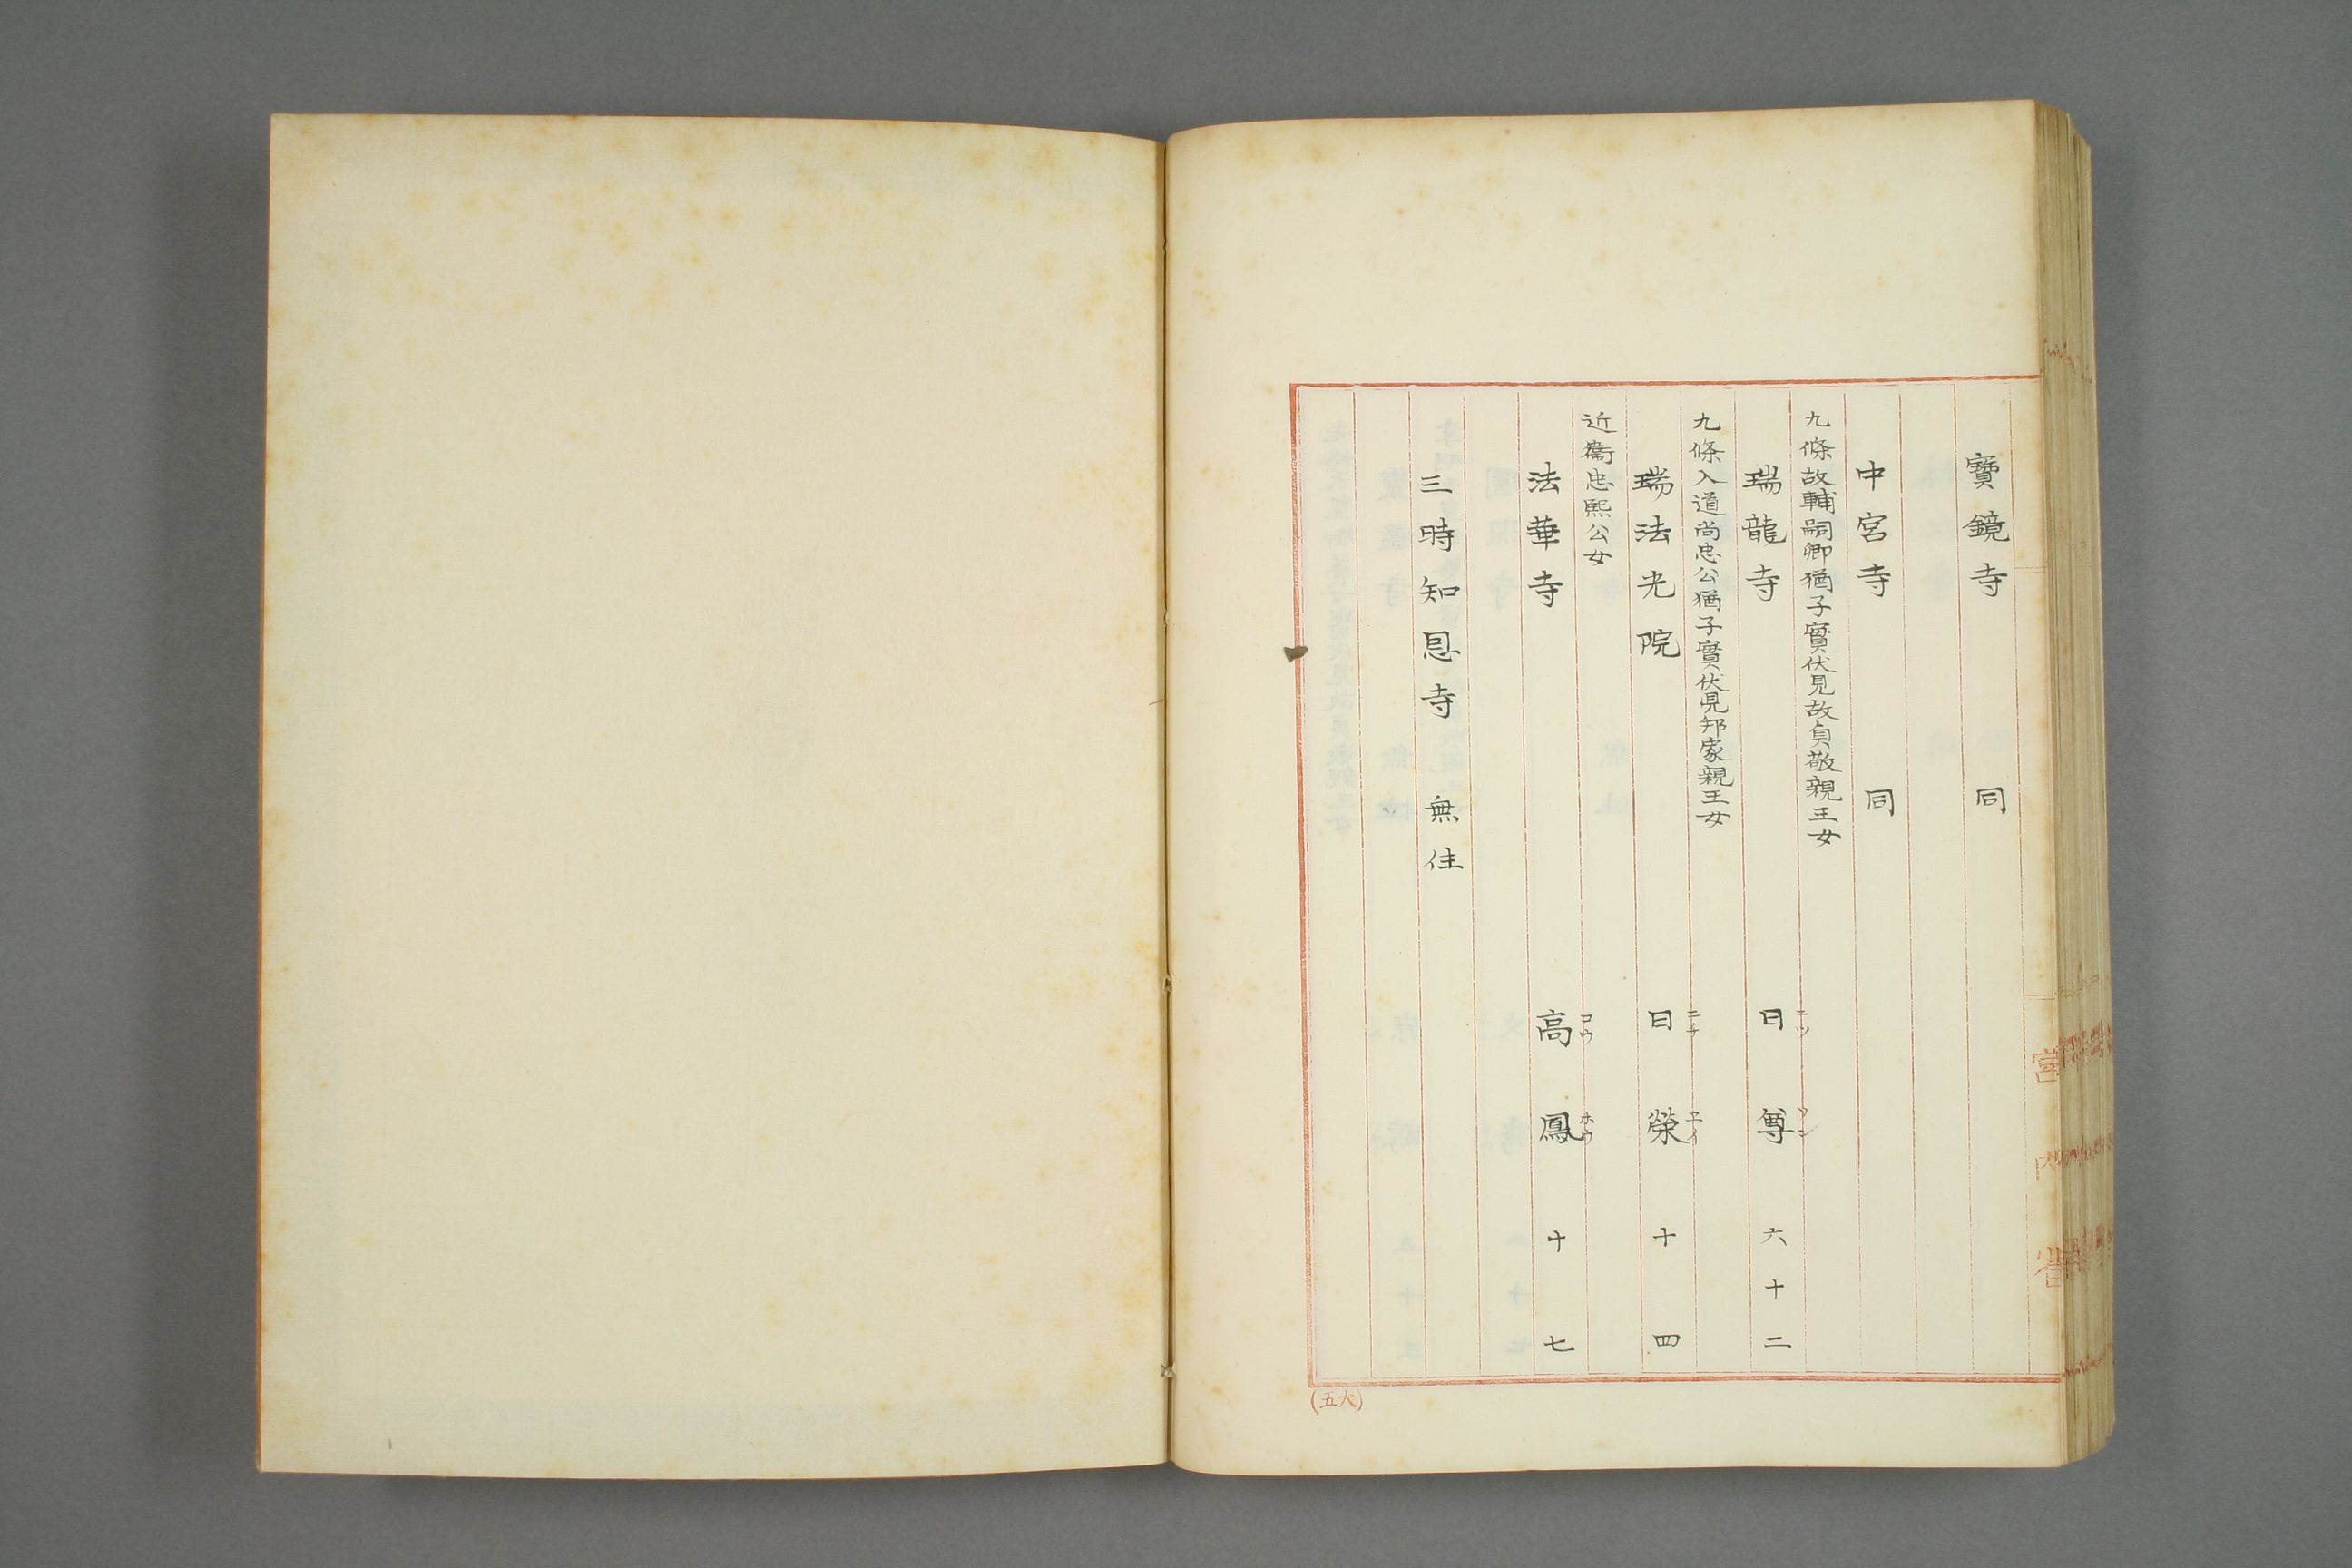 寶鏡寺 同
中宮寺 同
九條故輔嗣卿猶子實伏見故貞敬親王女
瑞龍寺 日尊 六十二
ニツ ソン
九條入道尚忠公猶子實伏見邦家親王女
瑞法光院 日榮 十四
ニチ エイ
近衞忠熙公女
法華寺 高鳳 十七
コウ ホウ
三時知恩寺 無住
宮内省
(五大)